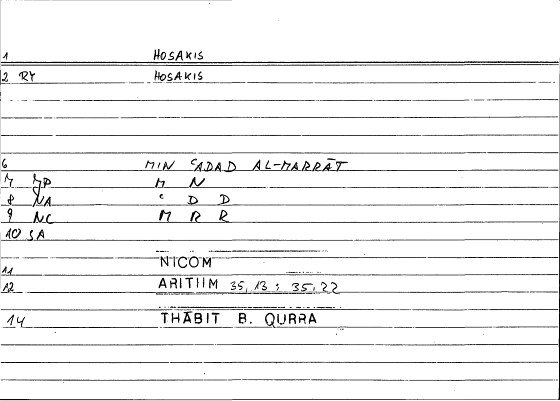 1 HOSAKIS
2 RY HOSAKIS
6 MIN ʿADAD AL-MARRĀT
7 JP M N
8 NA ʿ D D
9 NC M R R
10 SA
11 NICOM
12 ARITIIM 35,13 : 35,22
14 THĀBIT B. QURRA